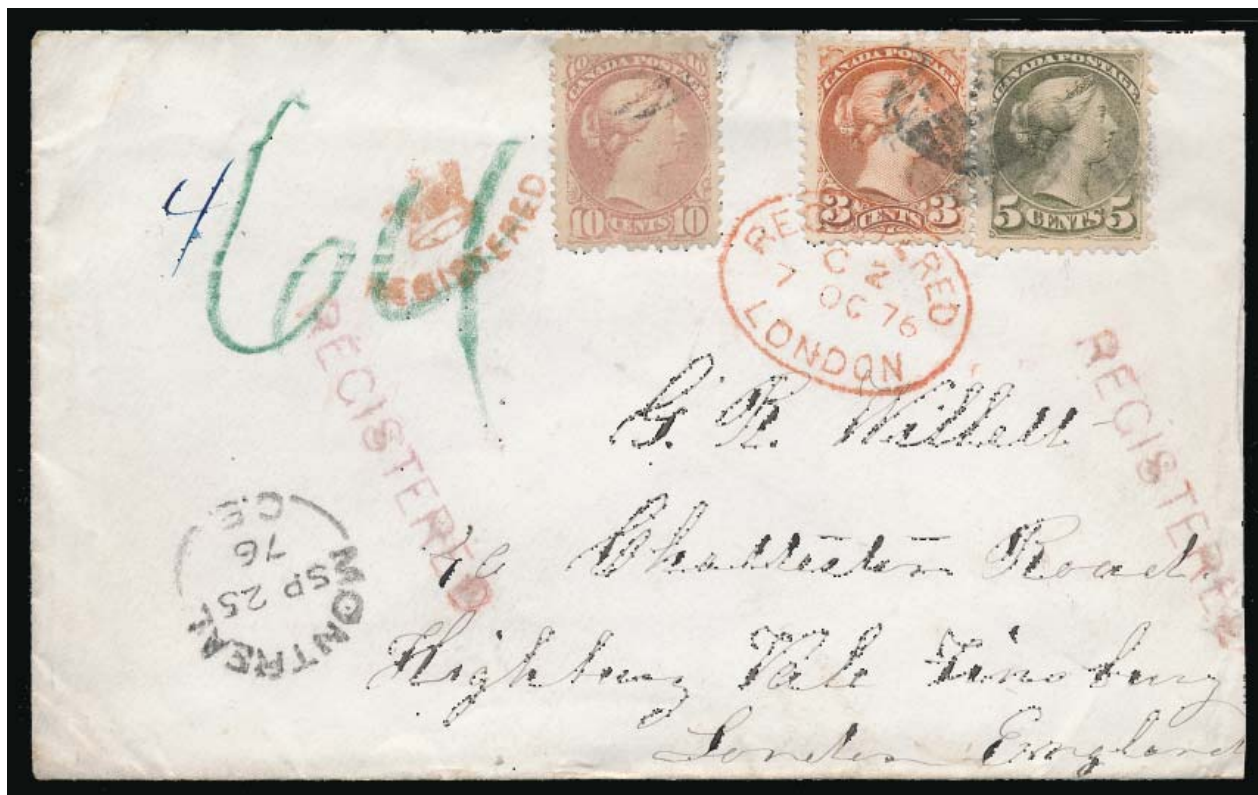 10 CANADA POSTAGE 10
10 CENTS 10
CANADA POSTAGE
3 CENTS 3
CANADA POSTAGE
5 CENTS 5
4
64
REGISTERED
REGISTERED
C Z
7 OC 76
LONDON
REGISTERED
REGISTERED
MONTREAL
SP 25
76
C.E.
G. R. Willett
Road
Highbury Vale Finsbury
London England